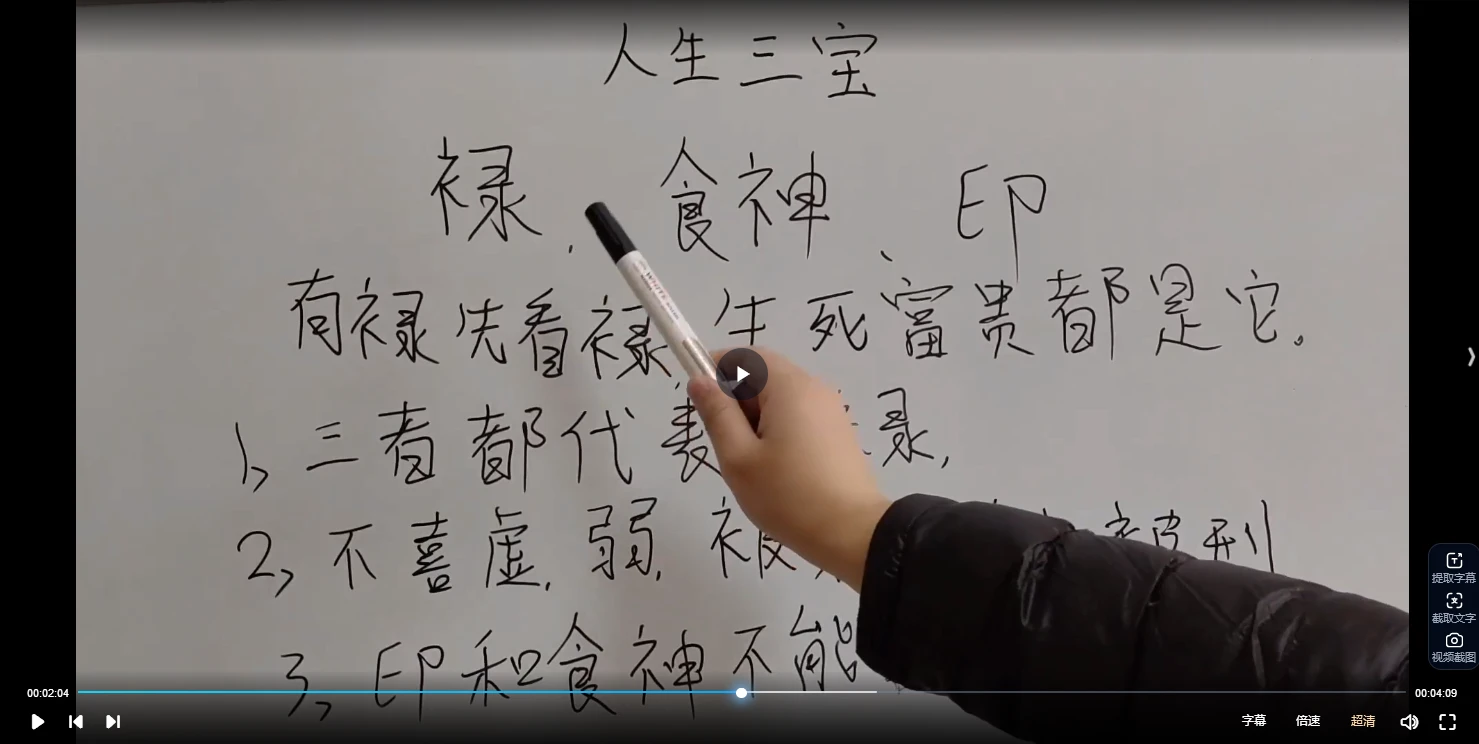 人生三宝
禄、食神、印
有禄先看禄,生死富贵都是它。
1、三者都代表禄,
2、不喜虚,弱,被 被刑
3、印和食神不能
WHITE
提取字幕
截取文字
视频截图
00:02:04
00:04:09
字幕 倍速 超清